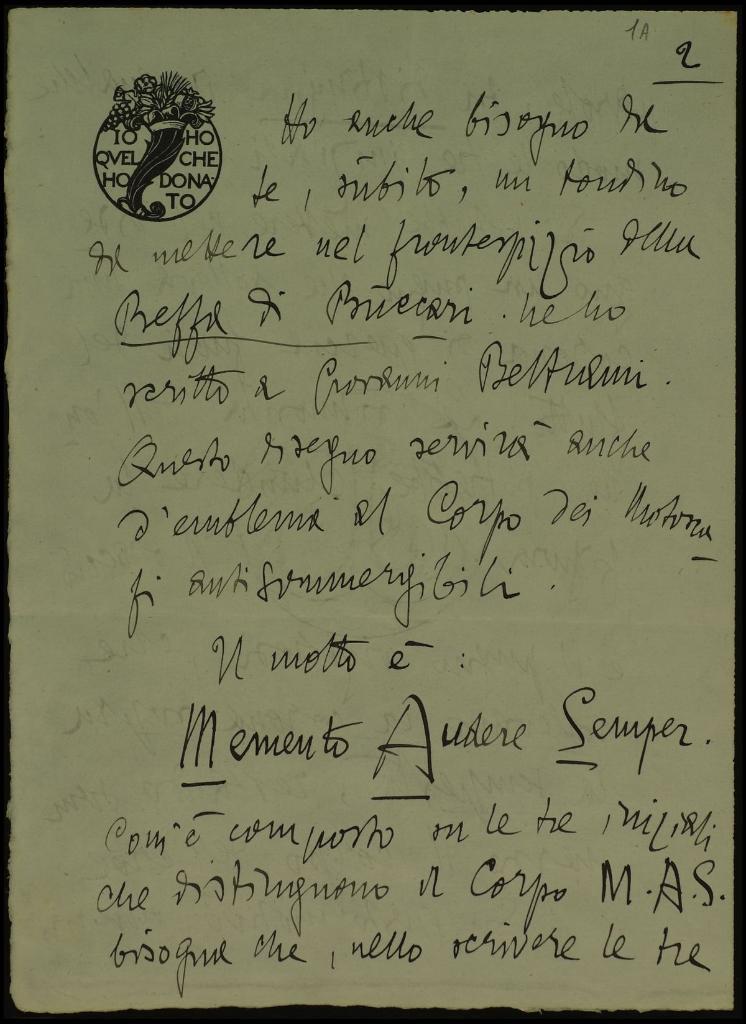 1A
2
IO HO
QVEL CHE
HO DONA-
TO
Ho anche bisogno di
te, sùbito, un tondino
da mettere nel frontespizio della
Beffa di Bùccari. Ne ho
scritto a Giovanni Beltrami.
Questo disegno servirà anche
d'emblema al Corpo dei Motosca-
fi antisommergibili.
Il motto è:
Memento Audere Semper.
Com'è composto su le tre iniziali
che distinguono il Corpo M.A.S.
bisogna che, nello scrivere le tre